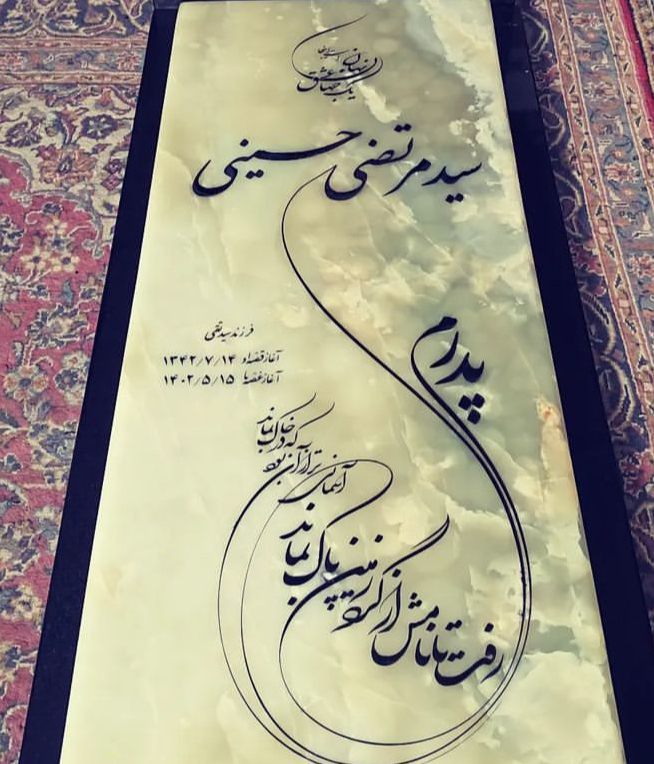 سید مرتضی حسینی
پدرم
فرزند سید تقی
آغاز قصه او ۱۳۴۲/۷/۱۴
آغاز غصه ما ۱۴۰۲/۵/۱۵
آسمانی تر از آن بود
که در خاک بماند
رفت تا نامش از گرد زمین پاک بماند